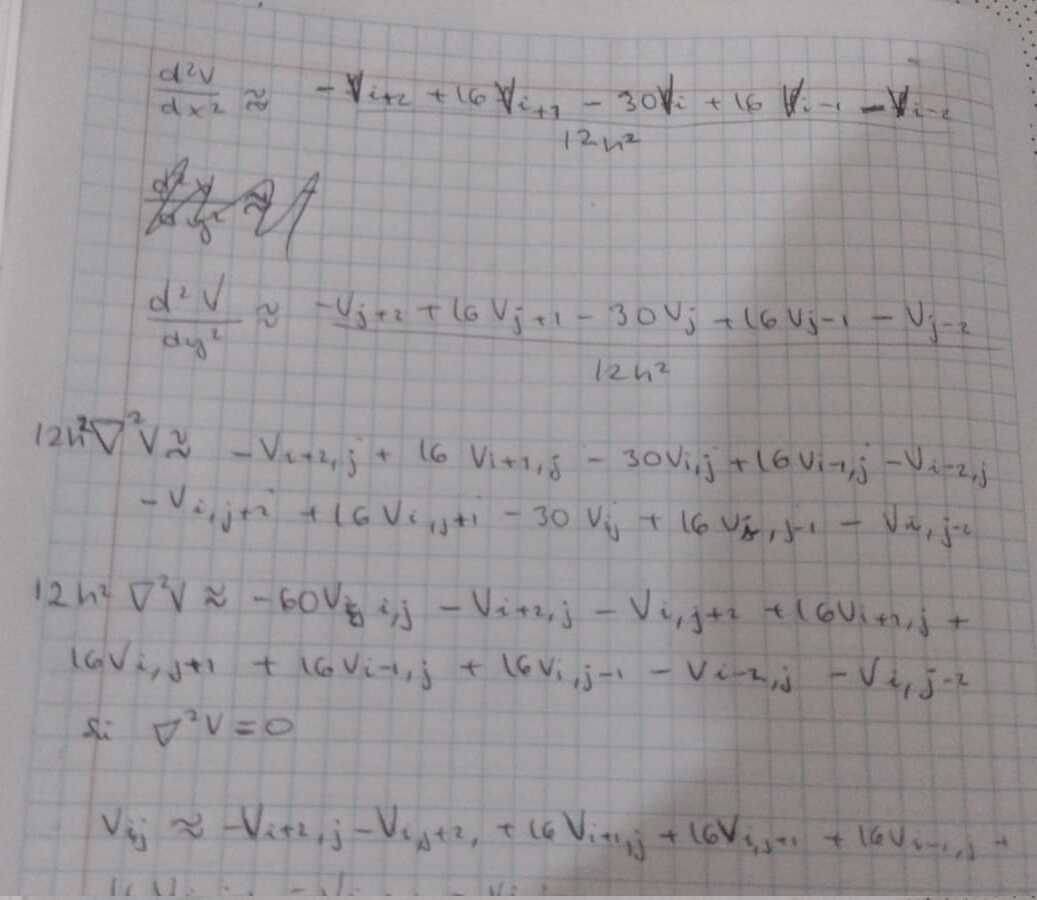 d²V/dx² ≈ -V_{i+2} + 16V_{i+1} - 30V_i + 16V_{i-1} - V_{i-2} / 12h²
d²V/dy² ≈ -V_{j+2} + 16V_{j+1} - 30V_j + 16V_{j-1} - V_{j-2} / 12h²
12h²∇²V ≈ -V_{i+2,j} + 16V_{i+1,j} - 30V_{i,j} + 16V_{i-1,j} - V_{i-2,j}
-V_{i,j+2} + 16V_{i,j+1} - 30V_{ij} + 16V_{i,j-1} - V_{i,j-2}
12h²∇²V ≈ -60V_{i,j} - V_{i+2,j} - V_{i,j+2} + 16V_{i+1,j} +
16V_{i,j+1} + 16V_{i-1,j} + 16V_{i,j-1} - V_{i-2,j} - V_{i,j-2}
si ∇²V = 0
V_{ij} ≈ -V_{i+2,j} - V_{i,j+2}, + 16V_{i+1,j} + 16V_{i,j+1} + 16V_{i-1,j} +